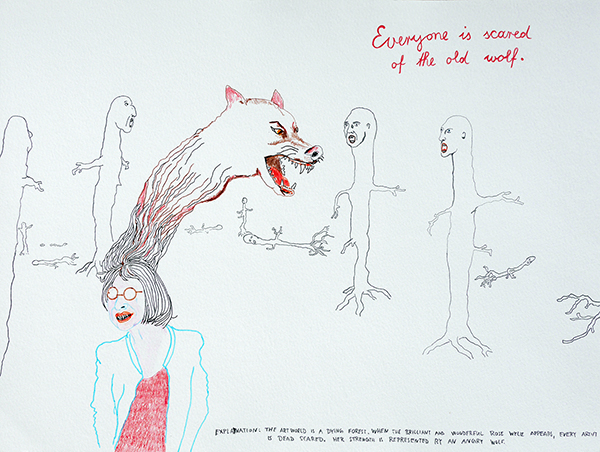 Everyone is scared
of the old wolf.
EXPLANATION: THE ARTWORLD IS A DYING FOREST. WHEN THE BRILLIANT AND WONDERFUL ROSE WYLIE APPEARS, EVERY ARTIST
IS DEAD SCARED. HER STRENGTH IS REPRESENTED BY AN ANGRY WOLF.